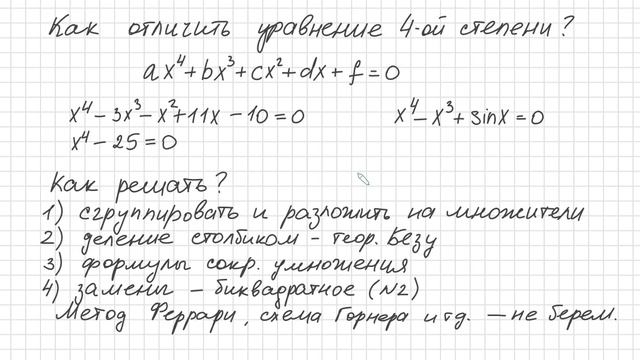 Как отличить уравнение 4-ой степени?
ax⁴+bx³+cx²+dx+f=0
x⁴-3x³-x²+11x-10=0 x⁴-x³+sinx=0
x⁴-25=0
Как решать?
1) сгруппировать и разложить на множители
2) деление столбиком - теор. Безу
3) формулы сокр. умножения
4) замены - биквадратное (N2)
Метод Феррари, схема Горнера и тд. — не берем.